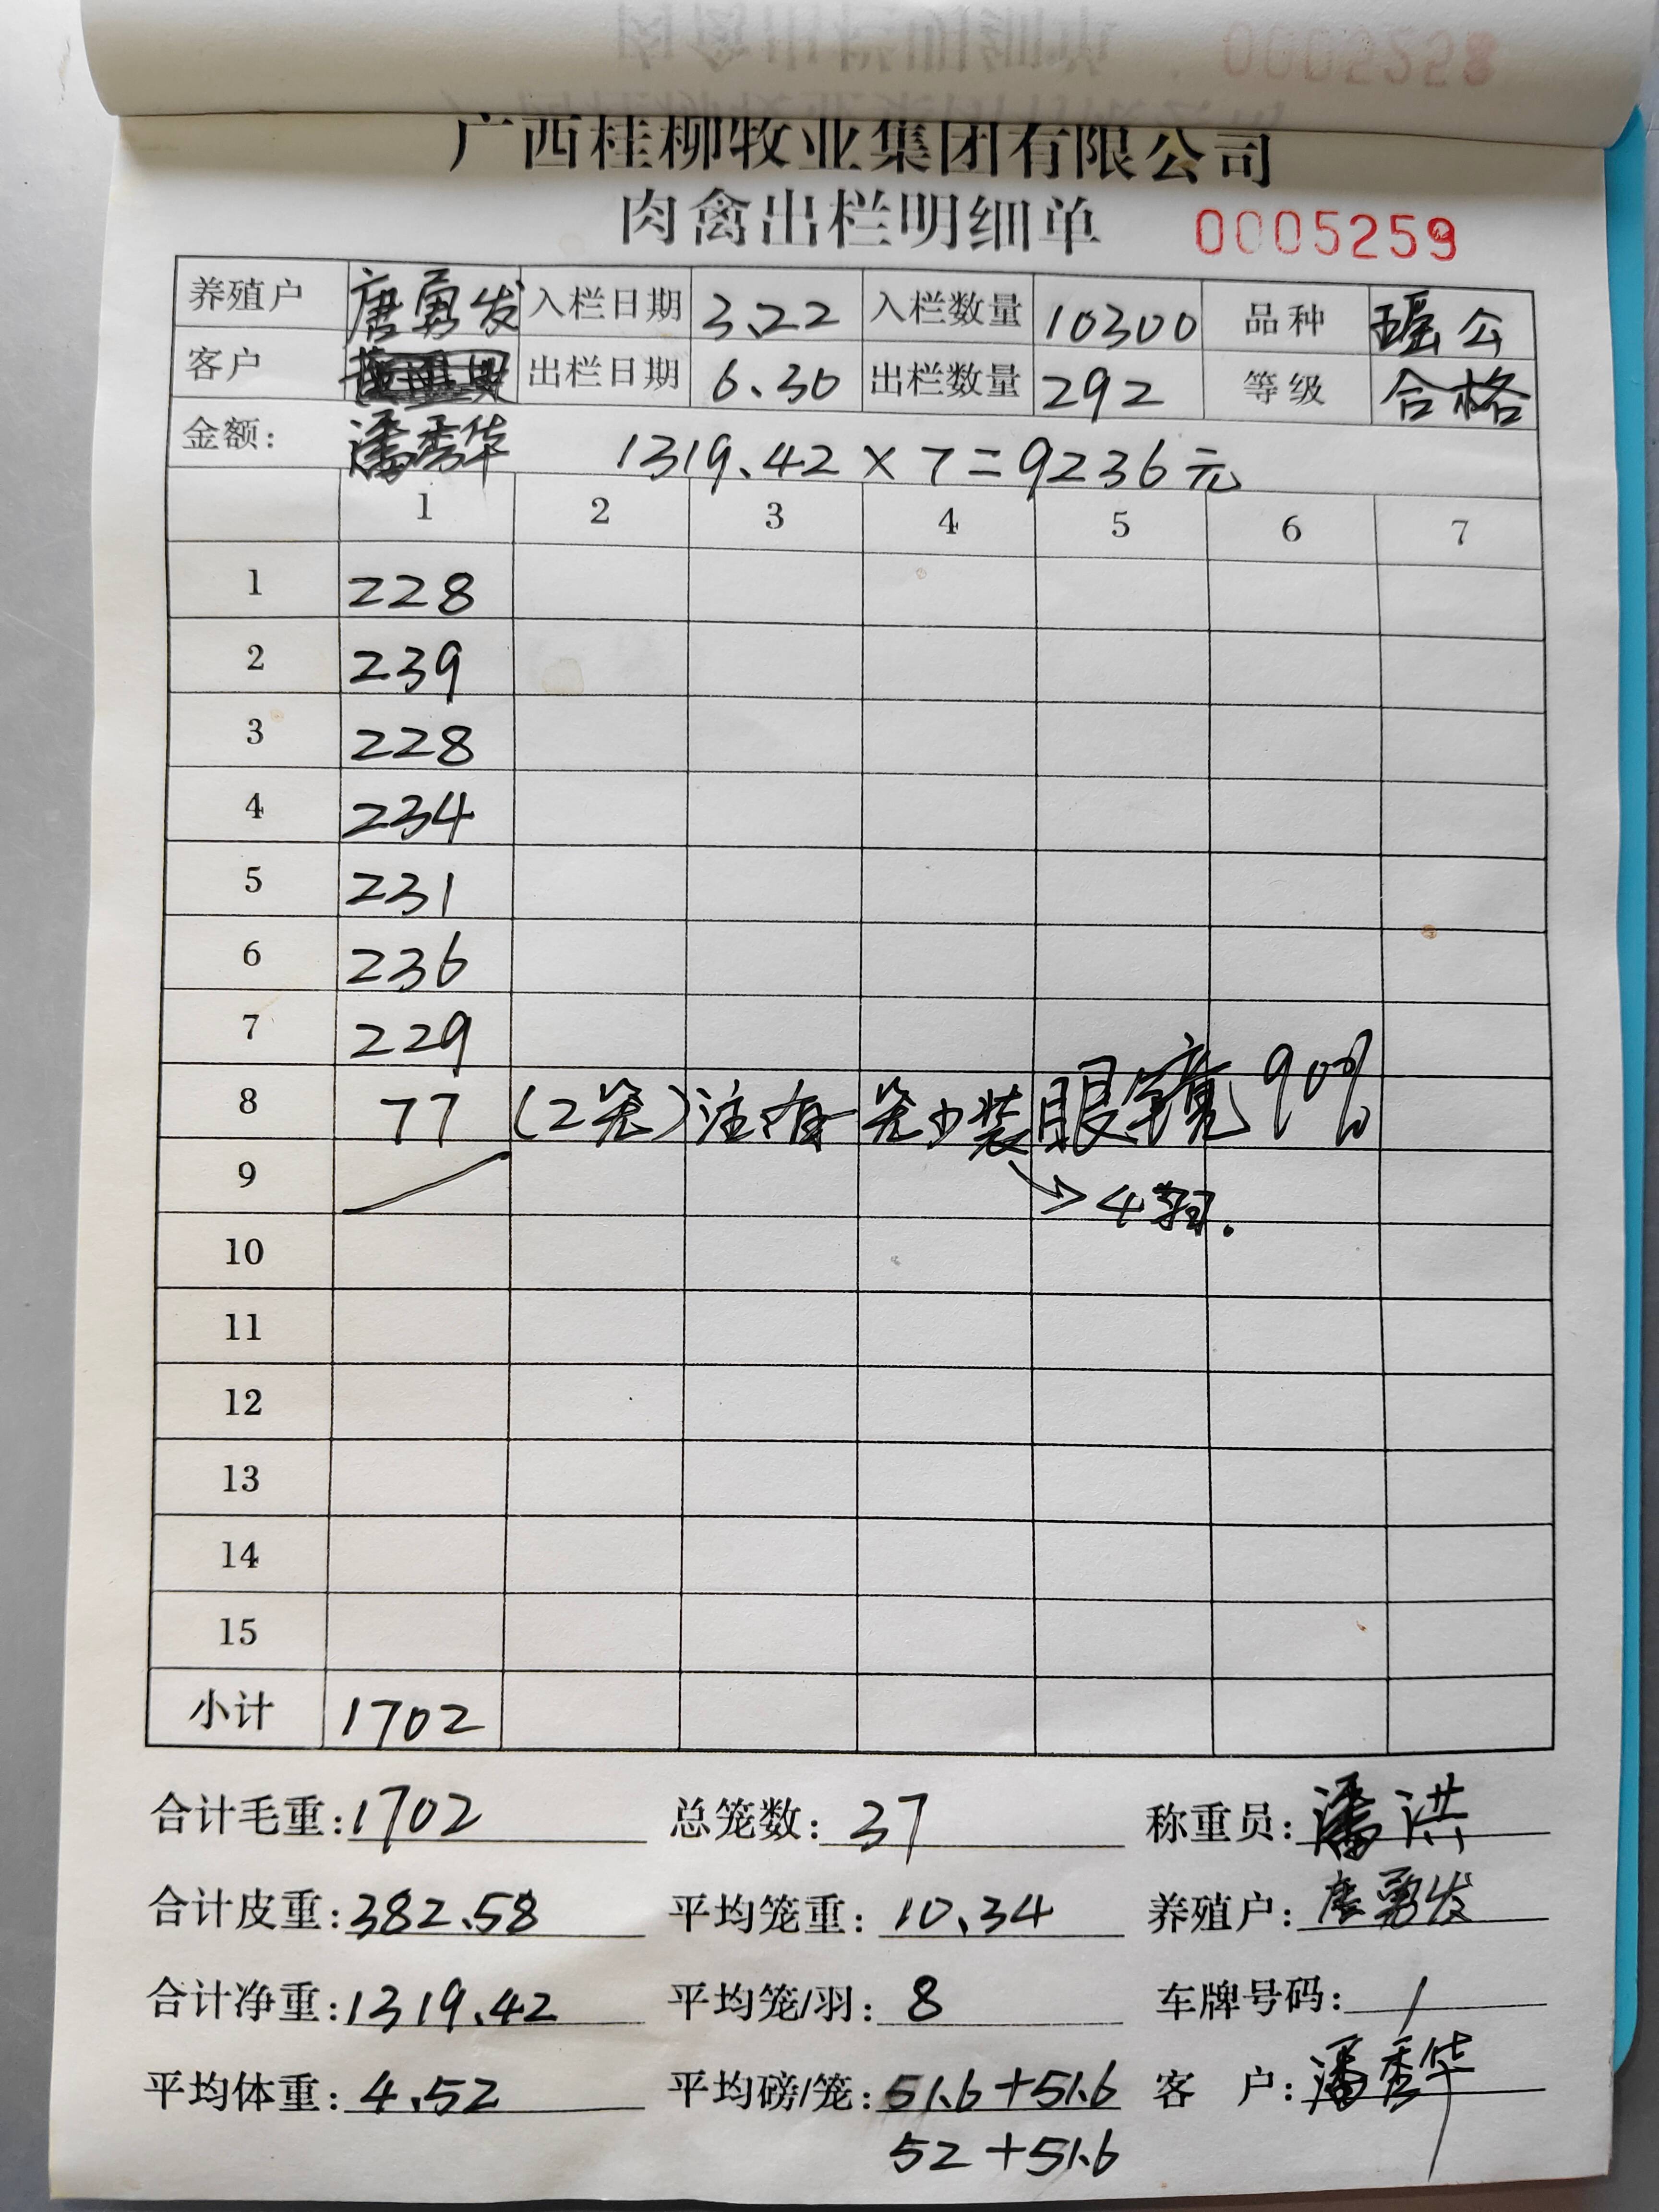 广西桂柳牧业集团有限公司
肉禽出栏明细单 0005259
养殖户 唐勇发 入栏日期 3.22 入栏数量 10300 品种 瑶公
客户 出栏日期 6.30 出栏数量 292 等级 合格
金额: 潘秀华 1319.42×7=9236元
1 2 3 4 5 6 7
1 228
2 239
3 228
4 234
5 231
6 236
7 229
8 77 (2笼)注:有一笼少装 眼镜90%
9 →4羽.
10
11
12
13
14
15
小计 1702
合计毛重:1702 总笼数:37 称重员:潘洪
合计皮重:382.58 平均笼重:10.34 养殖户:唐勇发
合计净重:1319.42 平均笼/羽:8 车牌号码:/
平均体重:4.52 平均磅/笼:51.6+51.6 客 户:潘秀华
52+51.6